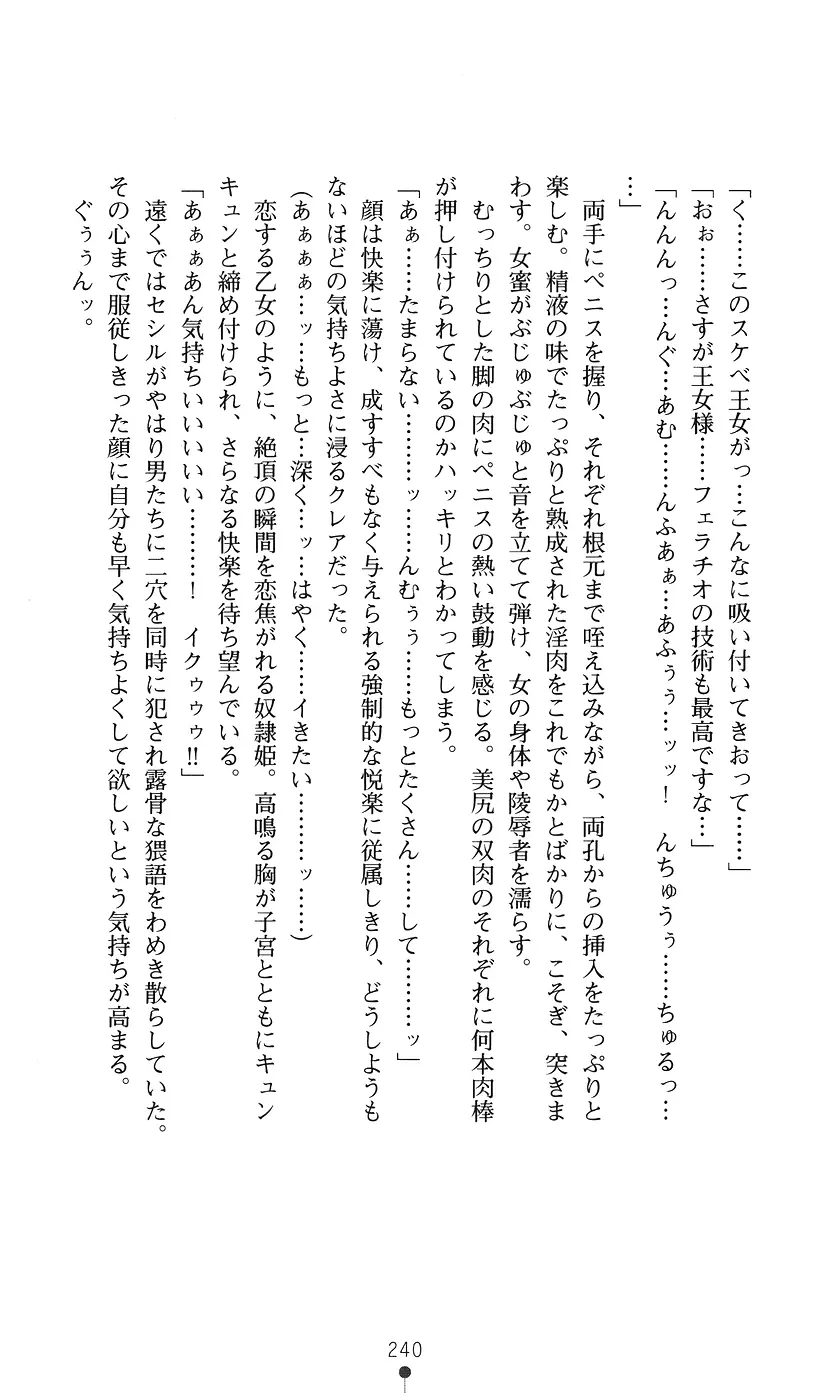 「く……このスケベ王女がっ…こんなに吸い付いてきおって……」
「おぉ……さすが王女様……フェラチオの技術も最高ですな…」
「んんんっ…んぐ…あむ……んふあぁ…あふぅぅ…ッッ！　んちゅうぅ……ちゅるっ…
…」
　両手にペニスを握り、それぞれ根元まで咥え込みながら、両孔からの挿入をたっぷりと
楽しむ。精液の味でたっぷりと熟成された淫肉をこれでもかとばかりに、こそぎ、突きま
わす。女蜜がぶじゅぶじゅと音を立てて弾け、女の身体や陵辱者を濡らす。
　むっちりとした脚の肉にペニスの熱い鼓動を感じる。美尻の双肉のそれぞれに何本肉棒
が押し付けられているのかハッキリとわかってしまう。
「あぁ……たまらない………ッ……んむぅぅ……もっとたくさん……して………ッ」
　顔は快楽に蕩け、成すすべもなく与えられる強制的な悦楽に従属しきり、どうしようも
ないほどの気持ちよさに浸るクレアだった。
（あぁぁぁ…ッ…もっと…深く…ッ…はやく……イきたい………ッ……）
　恋する乙女のように、絶頂の瞬間を恋焦がれる奴隷姫。高鳴る胸が子宮とともにキュン
キュンと締め付けられ、さらなる快楽を待ち望んでいる。
「あぁぁあん気持ちいいいいい………！　イクゥゥゥ!!」
　遠くではセシルがやはり男たちに二穴を同時に犯され露骨な猥語をわめき散らしていた。
その心まで服従しきった顔に自分も早く気持ちよくして欲しいという気持ちが高まる。
　ぐぅぅんッ。
240